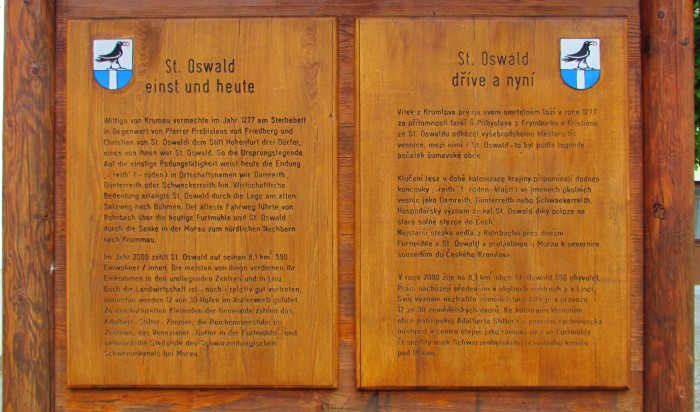 St. Oswald
einst und heute
Wittigo von Krumau vermachte im Jahr 1277 am Sterbebett
in Gegenwart von Pfarrer Prebislaus von Friedberg und
Christian von St. Oswaldi dem Stift Hohenfurt drei Dörfer,
eines von ihnen war St. Oswald. So die Ursprungslegende.
Auf die einstige Rodungstätigkeit weist heute die Endung
„-reith“ (= roden) in Ortschaftsnamen wie Damreith,
Günterreith oder Schwackerreith hin. Wirtschaftliche
Bedeutung erlangte St. Oswald durch die Lage am alten
Salzweg nach Böhmen. Der älteste Fahrweg führte von
Rohrbach über die heutige Furtmühle und St. Oswald
durch die Senke in der Morau zum nördlichen Nachbarn
nach Krummau.
Im Jahr 2000 zählt St. Oswald auf seinen 8,1 km² 590
Einwohner / innen. Die meisten von ihnen verdienen ihr
Einkommen in den umliegenden Zentren und in Linz.
Doch die Landwirtschaft ist - noch - relativ gut vertreten,
immerhin werden 12 von 30 Höfen im Vollerwerb geführt.
Zu den kulturellen Kleinoden der Gemeinde zählen das
Adalbert - Stifter - Zimmer, die
Zentrum, das in der Furtmühle und
natürlich die Steilstufe des Schwarzenbergischen
Schwemmkanals bei Morau.
St. Oswald
dříve a nyní
Vítek z Krumlova prý na svém smrtelném loži v roce 1277
za přítomnosti farářů Přibyslava z Frymburku a Kristiána
ze St. Oswaldu odkázal vyšebrodskému klášteru tři
vesnice, mezi nimi i St. Oswald - to byl podle legendy
počátek šumavské obce.
Klučení lesa v době kolonizace krajiny připomínají dodnes
koncovky „-reith“ (= roden - klučit) ve jménech okolních
vesnic jako Damreith, Günterreith nebo Schwackerreith.
Hospodářský význam získal St. Oswald díky poloze na
staré solné stezce do Čech.
Nejstarší stezka vedla z Rohrbachu přes dnešní
Furtmühle a St. Oswald a proláklinou u Morau k severním
sousedům do Českého Krumlova.
V roce 2000 žije na 8,1 km² obce St. Oswald 590 obyvatel.
Práci nacházejí především v okolních centrech a v Linci.
Svůj význam neztratilo zemědělství, stále je v provozu
12 ze 30 zemědělských dvorů. Ke kulturním klenotům
obce patří pokoj Adalberta Stiftera a
v centru stejně jako v Furtmühle
úsek Schwarzenberského plavebního kanálu
pod Morau.